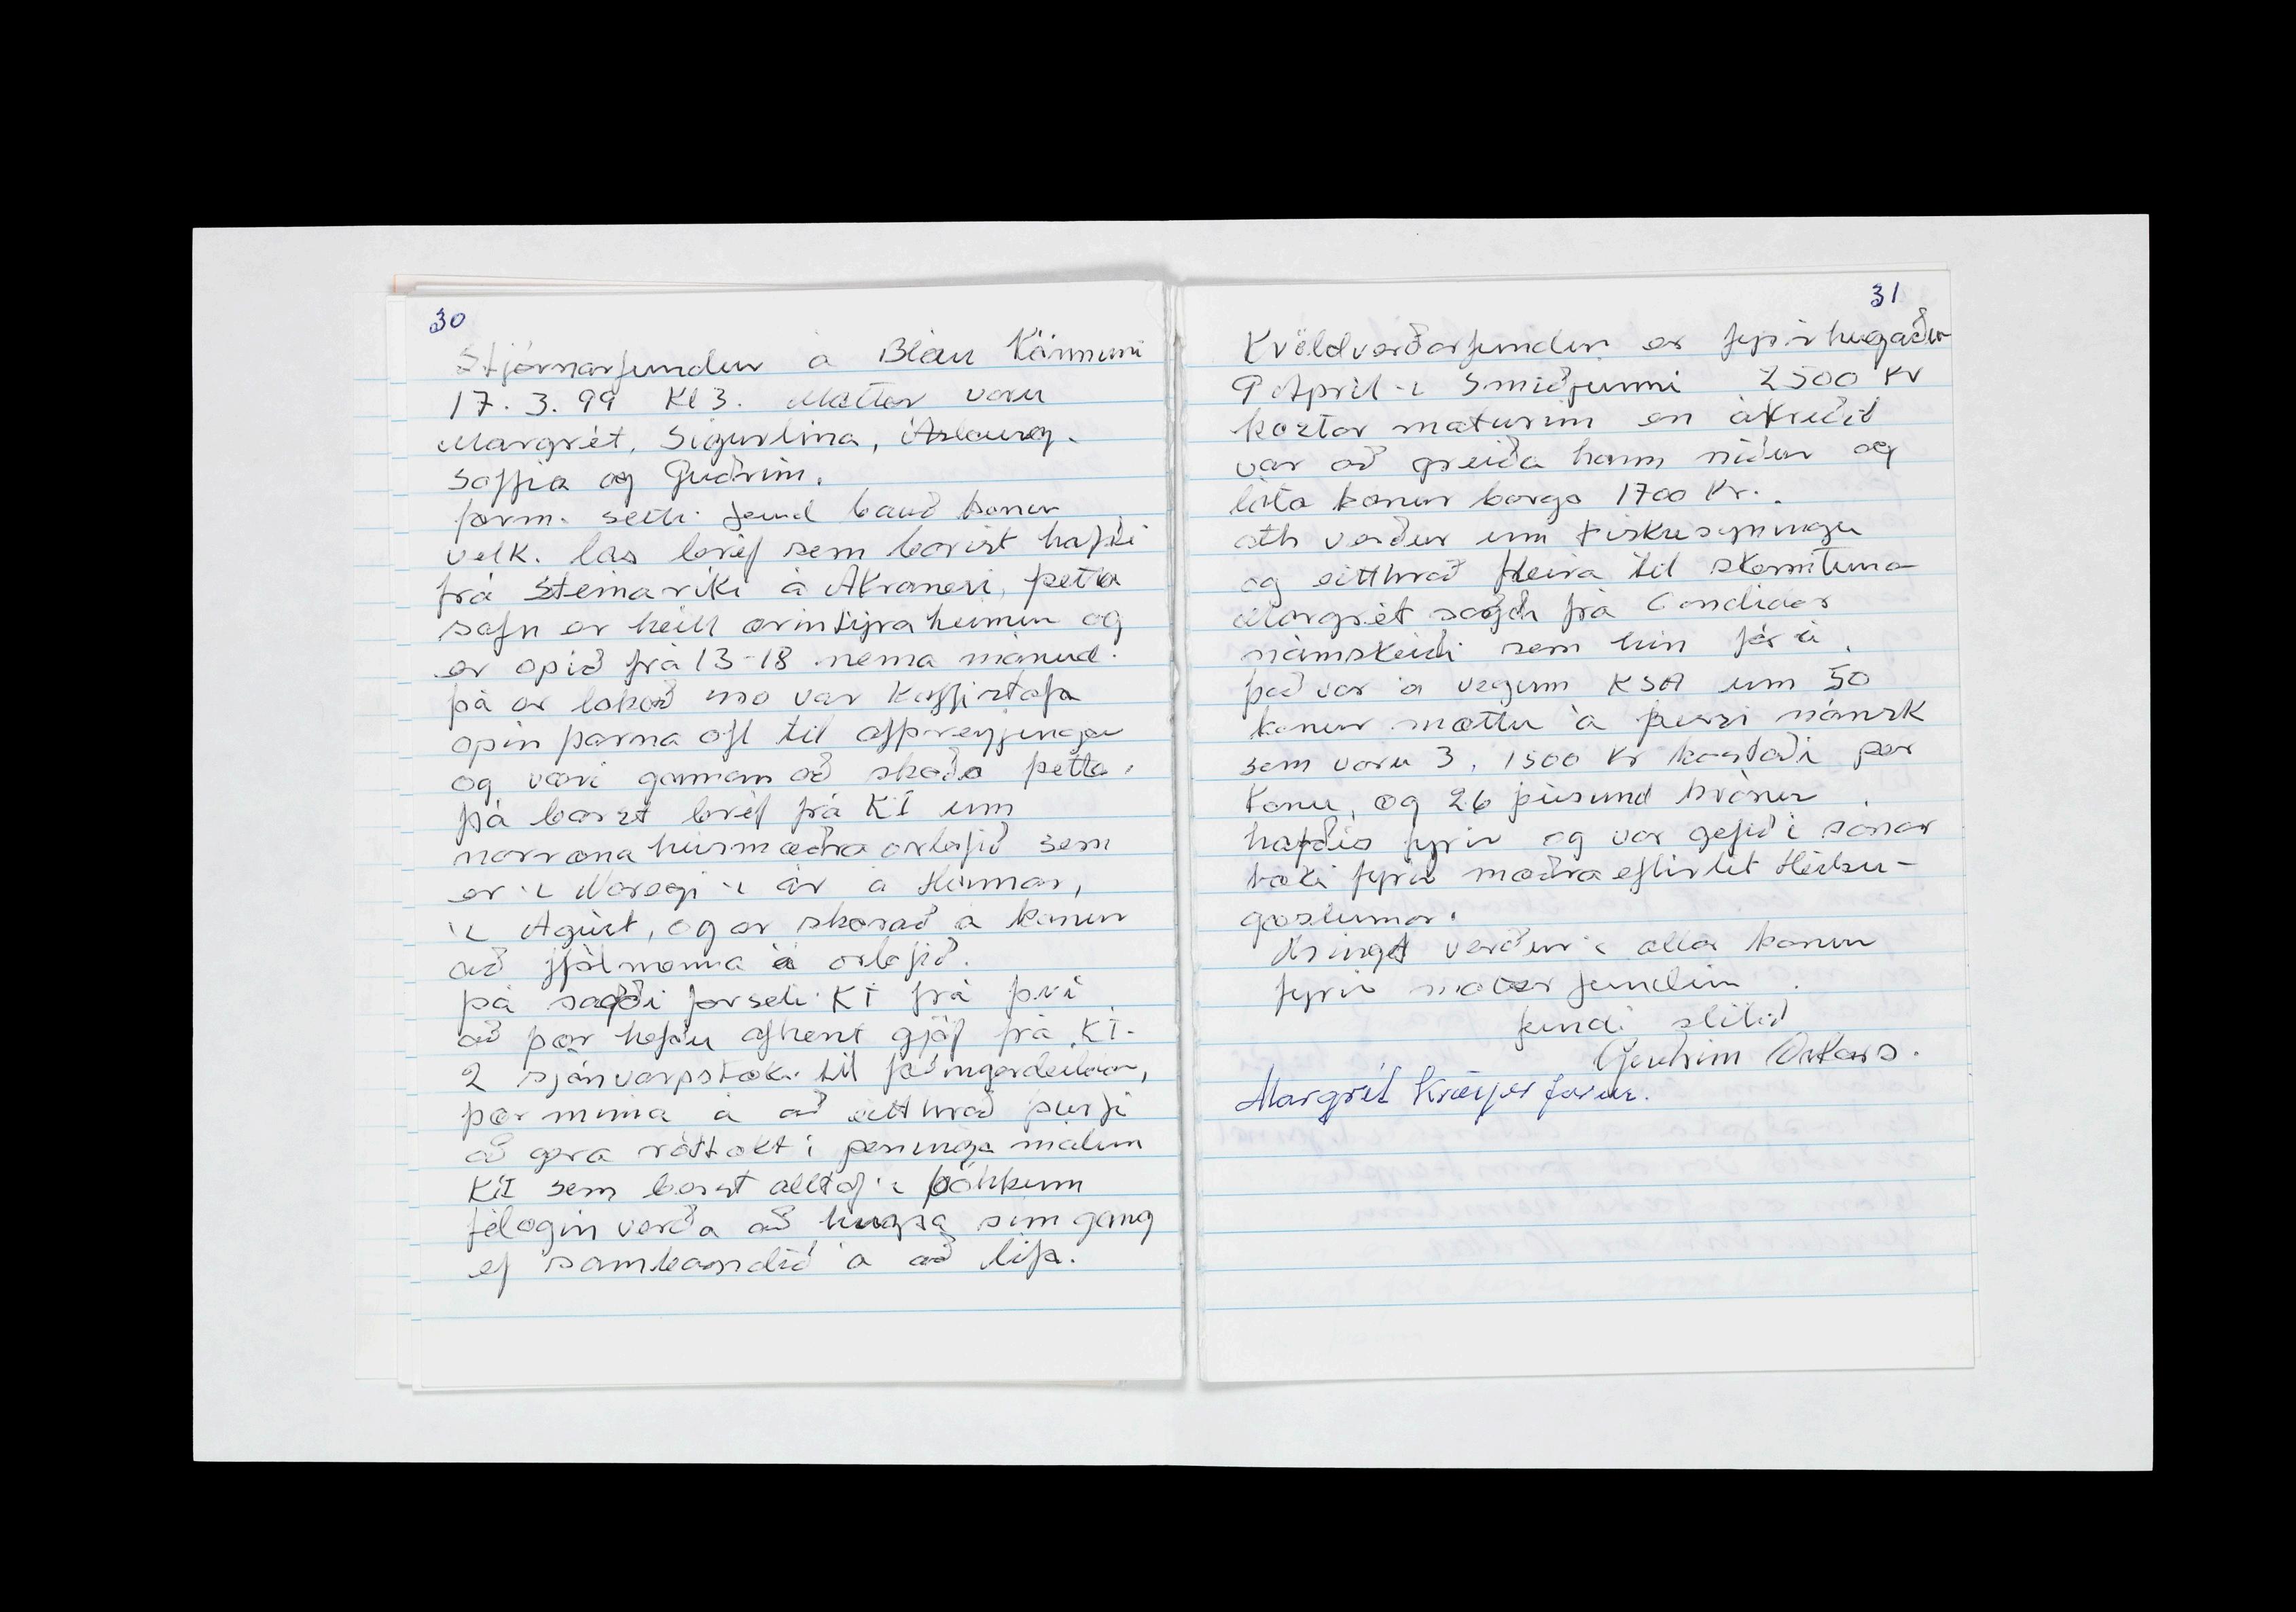 30
Stjórnarfundur á Bláu Könnuni
17. 3. 99 Kl 3. Mættar voru
Margrét, Sigurlína, Áslaug.
Soffía og Guðrún.
form. setti fund bauð konur
velk. las bréf sem borist hafði
frá Steinaríki á Akranesi, þetta
safn er heill ævintýra heimur og
er opið frá 13-18 nema mánud.
þá er lokað svo var kaffistofa
opin þarna ofl til afþreyjingar
og væri gaman að skoða þetta.
þá barst bréf frá KÍ um
norræna húsmæðra orlofið sem
er í Noregi í ár á Hamar,
í Agúst, og er skorað á konur
að fjölmenna á orlofið.
þá sagði forseti KÍ frá því
að þær hefðu afhent gjöf frá KÍ.
2 sjónvarpstæki til fæðingardeildar,
þær minna á að eitthvað þurfi
að gera róttækt í peninga málum
KÍ sem berst alltaf í bökkum
félögin verða að hugsa sinn gang
ef sambandið á að lifa.
31
Kvöldverðarfundur er fyrirhugaður
9 April í Smiðjunni 2500 kr
kostar maturinn en ákveðið
var að greiða hann niður og
láta konur borga 1700 kr.
ath verður um tískusýningu
og eitthvað fleira til skemtunar
Margrét sagði frá Candidas
námskeiði sem hún fór á.
það var á vegum KSA um 50
konur mættu á þessi námsk
sem voru 3, 1500 kr kostaði per
konu, og 26 þúsund krónur
hafðis fyrir og var gefið í sónar
tæki fyrir mæðraeftirlit Heilsu-
gæslunnar.
Hringt verður í allar konur
fyrir matarfundinn.
fundi slitið
Guðrún
Margrét Kröyer form.